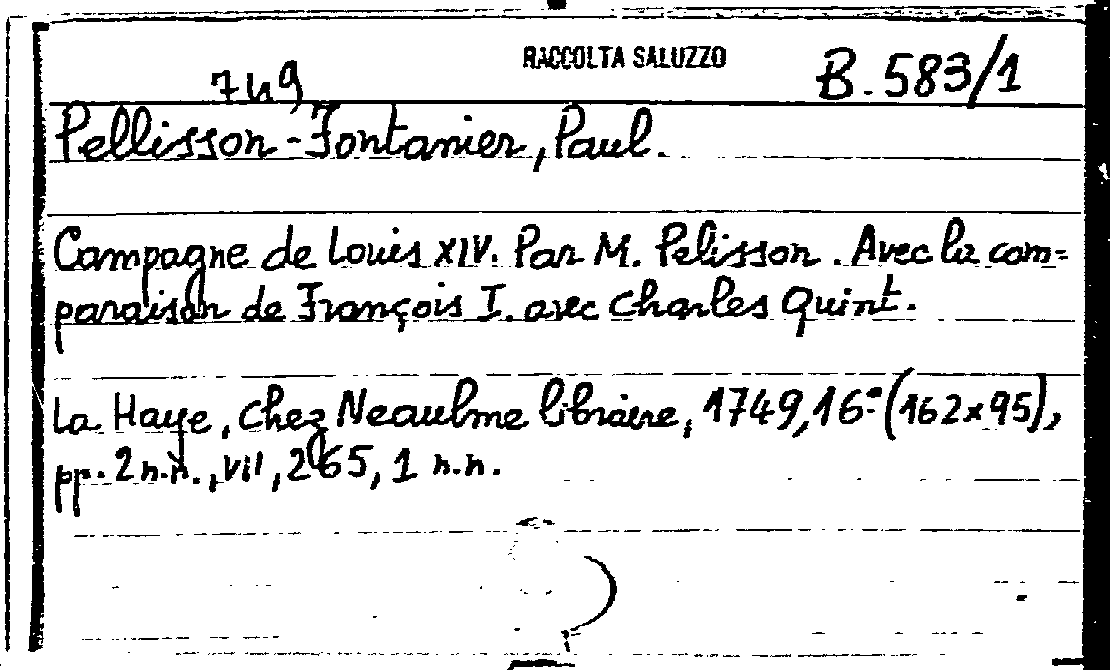 RACCOLTA SALUZZO
749
B. 583/1
Pellisson-Fontanier, Paul.
Campagne de Louis XIV. Par M. Pelisson. Avec la com=
paraison de François I. avec Charles Quint.
La Haye, chez Neaulme libraire, 1749, 16º (162x95),
pp. 2 n.n., VII, 265, 1 n.n.